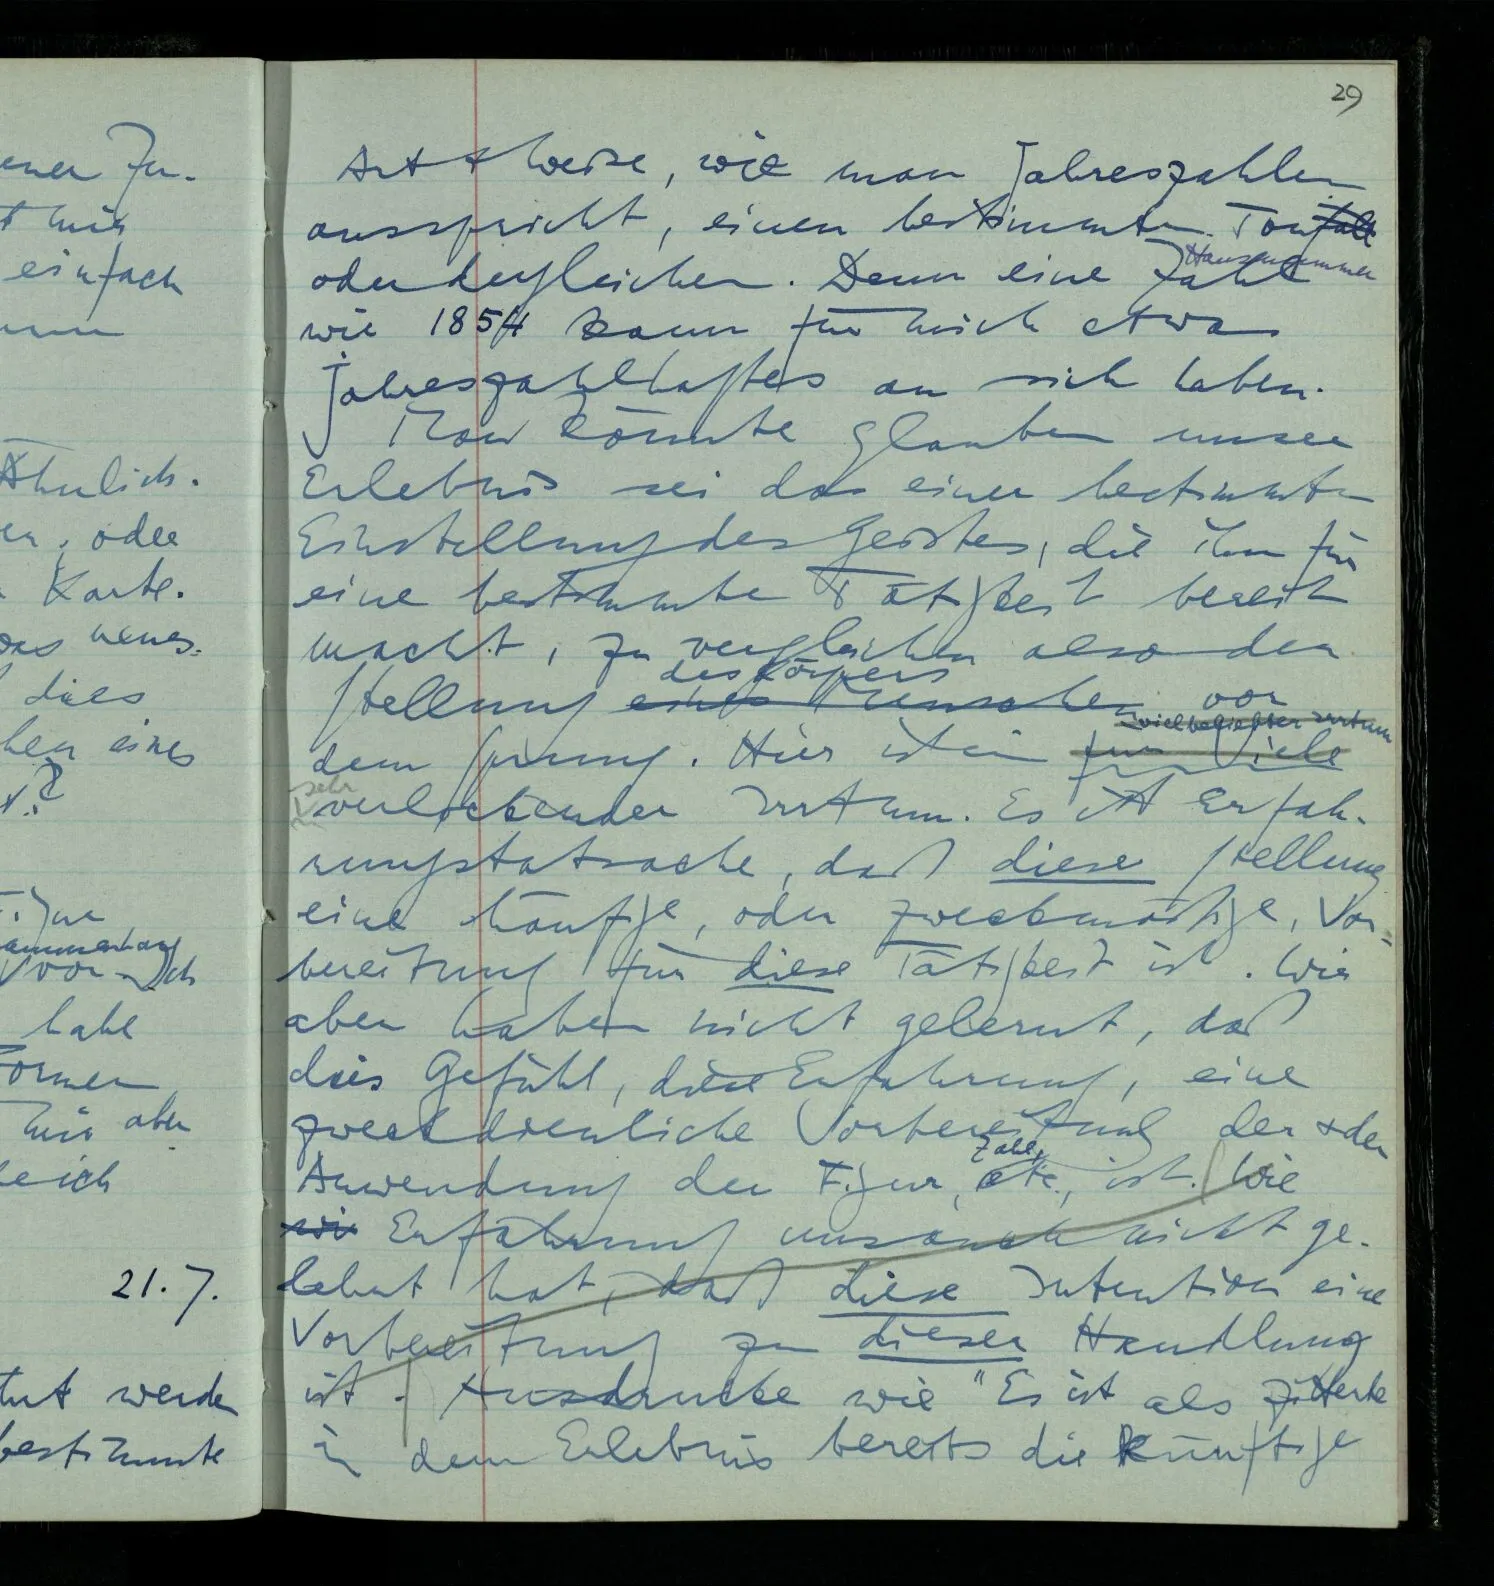 ener Zu-
t mir
einfach
Ähnlich-
en, oder
Karte.
das neues-
dies
hen eines
Figur
sammenhang
vor-
habe
Formen
mir aber
leich
21.7.
tut werden
bestimmte
29
Art & Weise, wie man Jahreszahlen
ausspricht, einen bestimmten Tonfall
Hausnummer
oder dergleichen. Denn eine Zahl
wie 1854 kann für mich etwas
Jahreszahlhaftes an sich haben.
Man könnte glauben unser
Erlebnis sei das einer bestimmten
Einstellung des Geistes, die ihn für
eine bestimmte Tätigkeit bereit
macht, zu vergleichen also der
des Körpers
Stellung eines Menschen vor
vielbeliebter Irrtum
dem Sprung. Hier ist ein für Viele
sehr
verlockender Irrtum. Es ist Erfah-
rungstatsache, daß diese Stellung
eine häufige, oder zweckmäßige, Vor-
bereitung für diese Tätigkeit ist. Wir
aber haben nicht gelernt, daß
dies Gefühl, diese Erfahrung, eine
zweckdienliche Vorbereitung der & der
Zahl,
Anwendung der Figur, etc., ist. Wie
wir Erfahrung uns auch nicht ge-
lehrt hat, daß diese Intention eine
Vorbereitung zu dieser Handlung
ist. Ausdrücke wie "Es ist als zitterte
in dem Erlebnis bereits die künftige